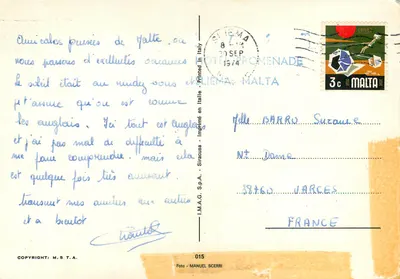 Amicales pensées de Malte, ou
nous passons d'excellentes vacances
le soleil était au rendez vous
j't'assure qu'on est comme
les anglais. Ici tout est anglais
et j'ai pas mal de difficulté à
me faire comprendre. mais cela
est quelque fois très amusant.
transmet mes amitiés aux autres
et a bientot
COPYRIGHT: M.S T.A.
I.M.A.G. S.p.A. - Siracusa - Imprimé en Italie - Printed in Italy
015
Foto - MANUEL SCERRI
SLIEMA
SEP
1974
PROMENADE
SLIEMA, MALTA
3c MALTA
Melle BARRU Suzanne
Nt Dame
38760 VARCES
FRANCE